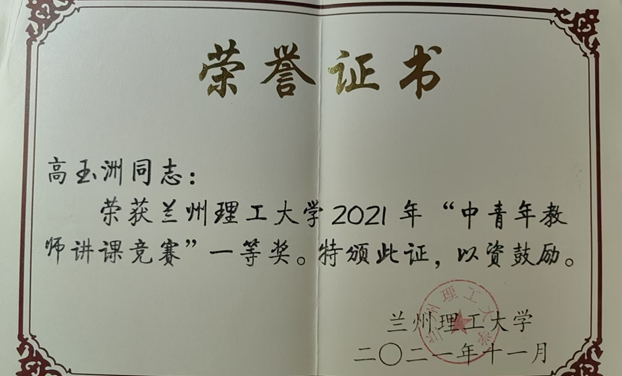 荣誉证书
高玉洲同志：
荣获兰州理工大学2021年“中青年教
师讲课竞赛”一等奖。特颁此证，以资鼓励。
兰州理工大学
二〇二一年十一月
兰州理工大学